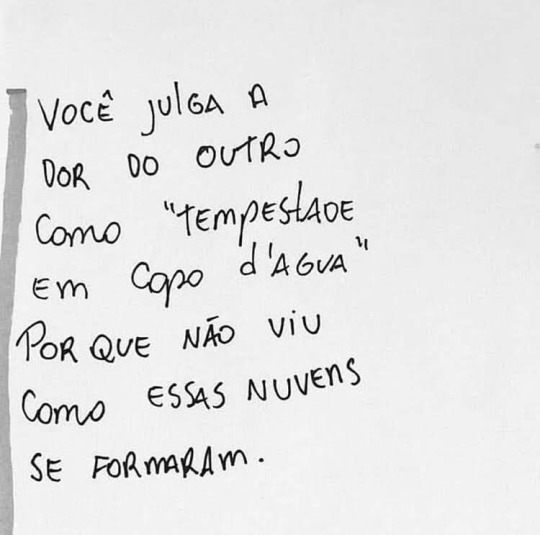 VOCÊ JUlGA A
DOR DO OUTRO
Como "TEMPEStADE
Em Copo d'AGUA"
POR QUE NÃO ViU
Como ESSAS NUVENS
SE FORMARAM.